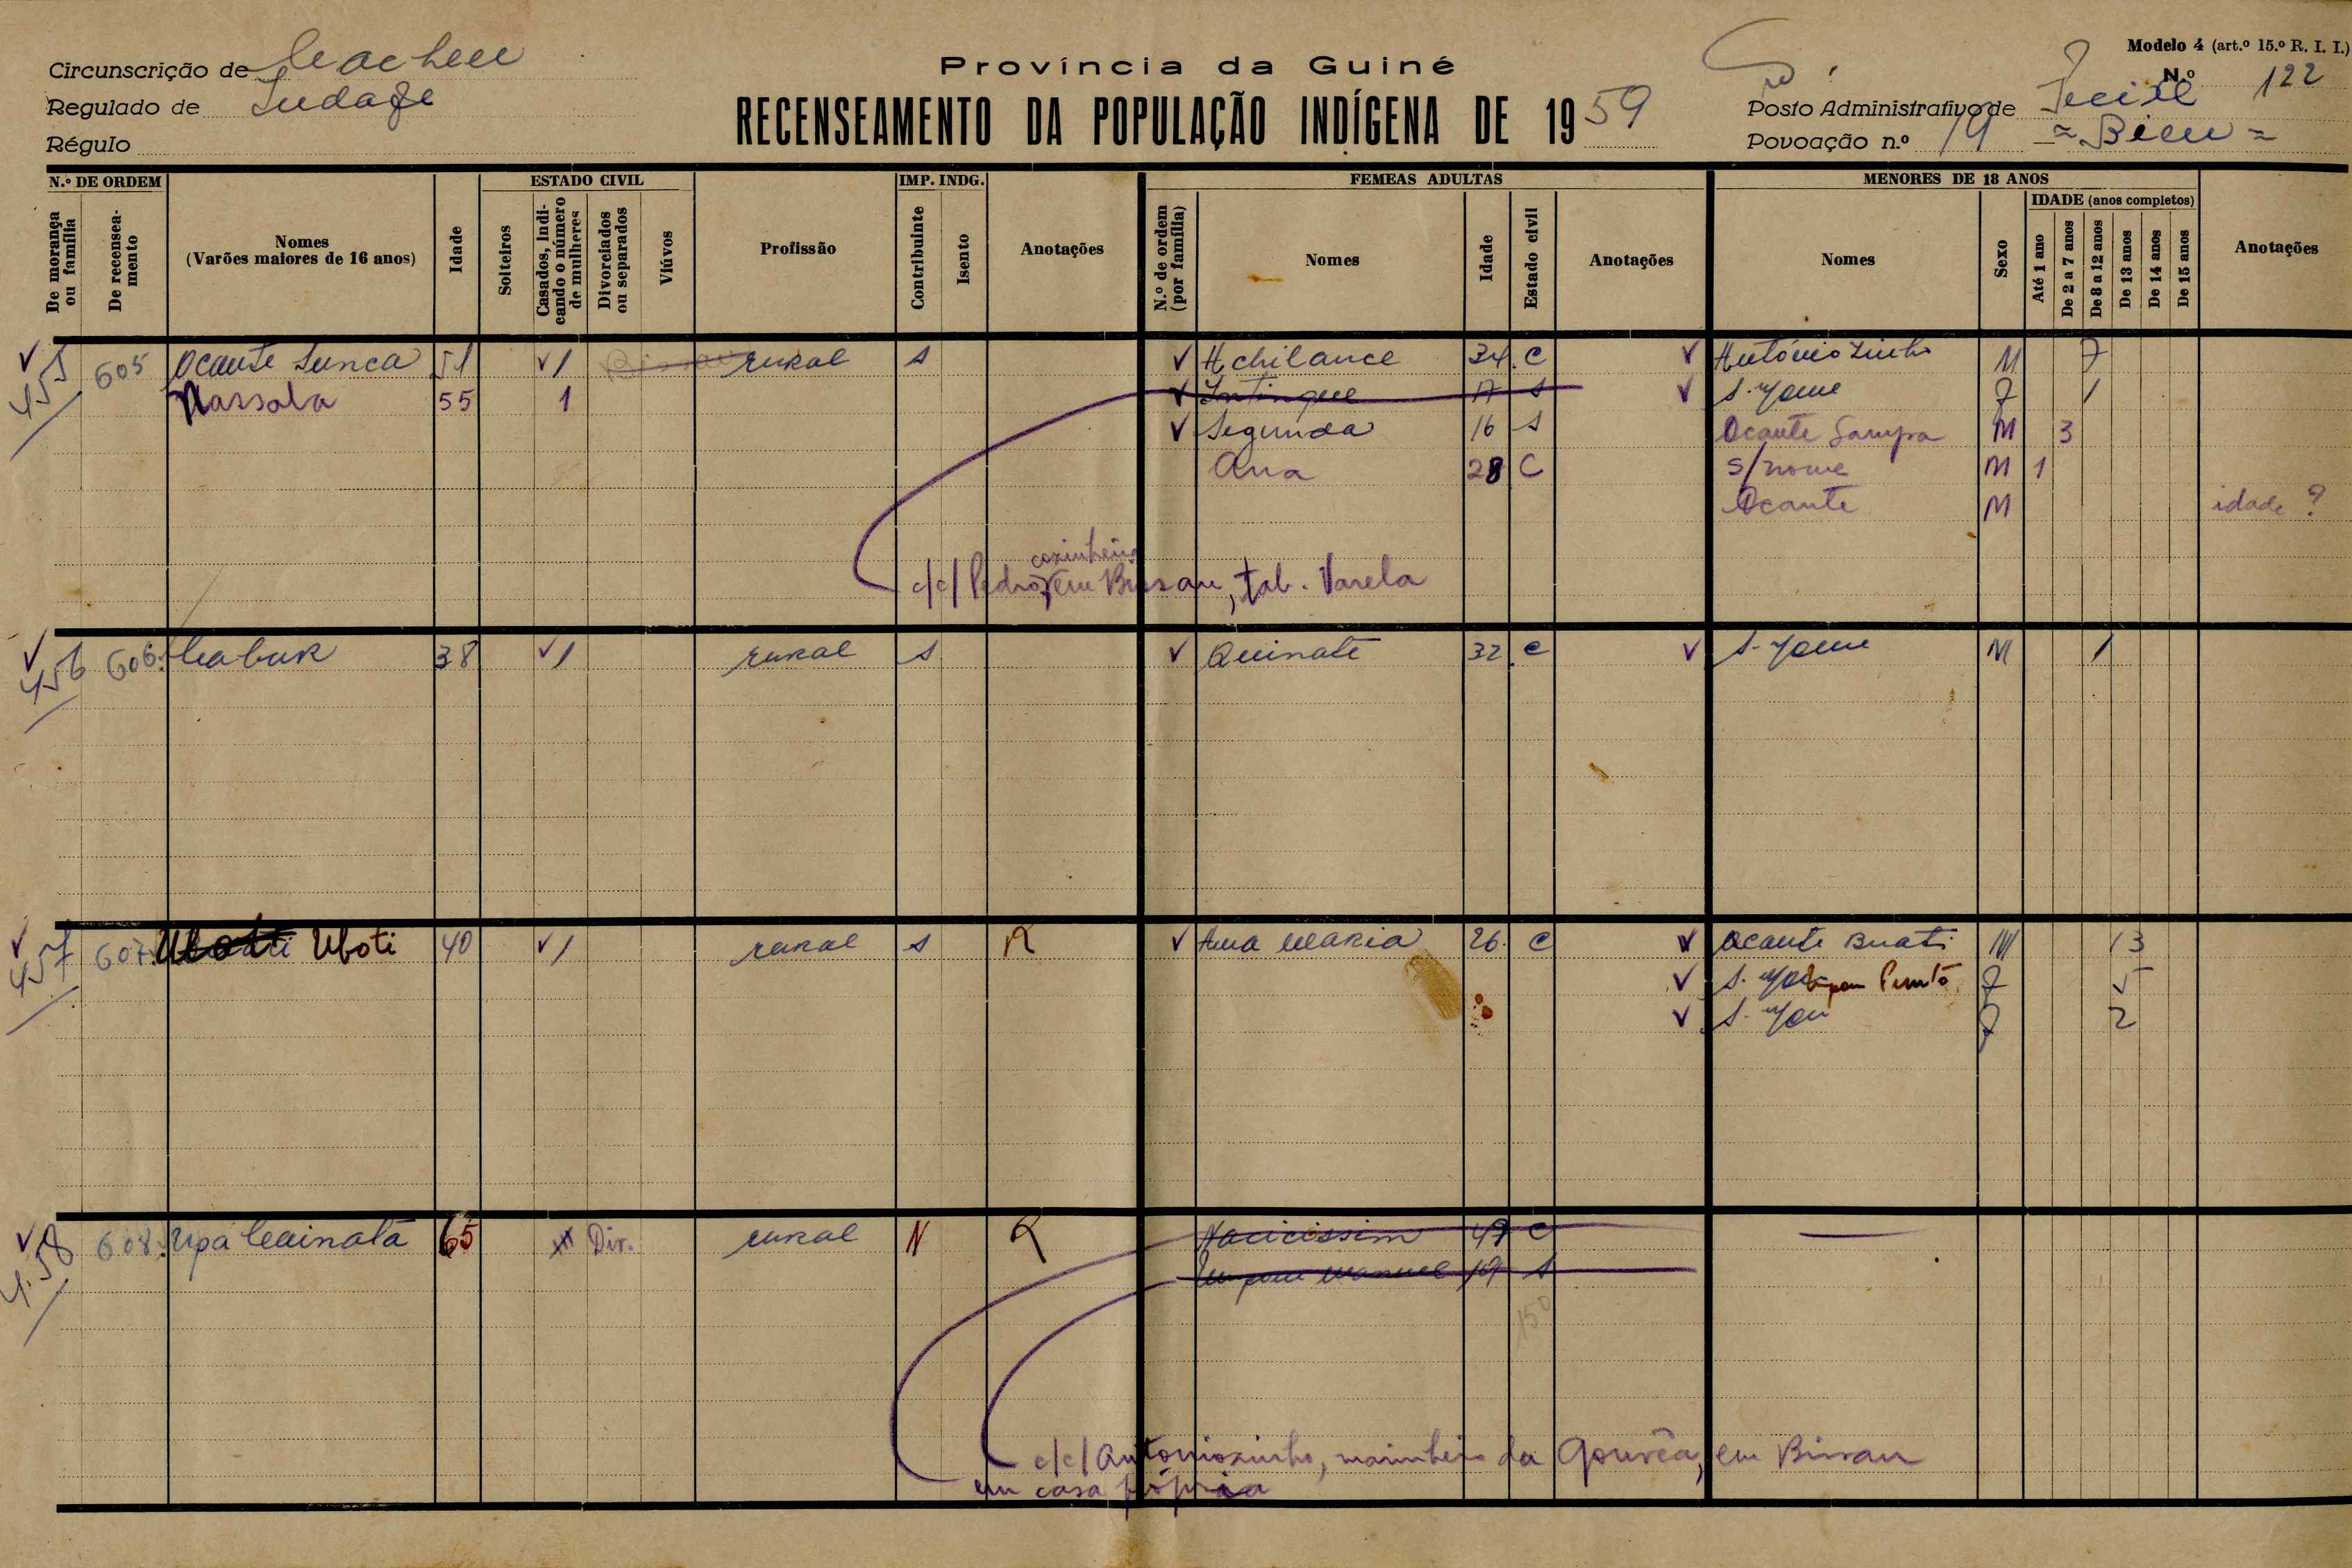 Modelo 4 (art.º 15.º R. I. I.)
Circunscrição de Cacheu
Província da Guiné
N.º 122
Regulado de
RECENSEAMENTO DA POPULAÇÃO INDÍGENA DE 1959
Posto Administrativo de
Régulo
Povoação n.º 19 = Bieu =
N.º DE ORDEM ESTADO CIVIL IMP. INDG. FEMEAS ADULTAS MENORES DE 18 ANOS
De morança ou família
De recenseamento
Nomes
(Varões maiores de 16 anos)
Idade
Solteiros
Casados, indicando o número de mulheres
Divorciados ou separados
Viúvos
Profissão
Contribuinte
Isento
Anotações
N.º de ordem (por família)
Nomes
Idade
Estado civil
Anotações
Nomes
Sexo
IDADE (anos completos)
Até 1 ano
De 2 a 7 anos
De 8 a 12 anos
De 13 anos
De 14 anos
De 15 anos
Anotações
455 605 Ocante Sunca 51 1 rural s Achilance 34 C Antóniozinho M 7
Nassola 55 1 Intingue 17 s S. nome F 1
Segunda 16 s Ocante Sampa M 3
Ana 28 C s/nome M 1
Ocante M idade ?
cozinheiro
c/c/ Pedro, em Bissau, tab. Varela
456 606 Cabuk 38 1 rural s Quinate 32 C S. nome M 1
457 607 Uboti 40 1 rural s R Ana Maria 26 C Ocante Buati M 13
S. F 5
S. F 2
458 608 Upa Cainata 65 Div. rural N R Nacicissim 47 C —
Manuel 19 s
150
c/c/ Antoniozinho, marinheiro da Gouvêa, em Bissau
em casa própria